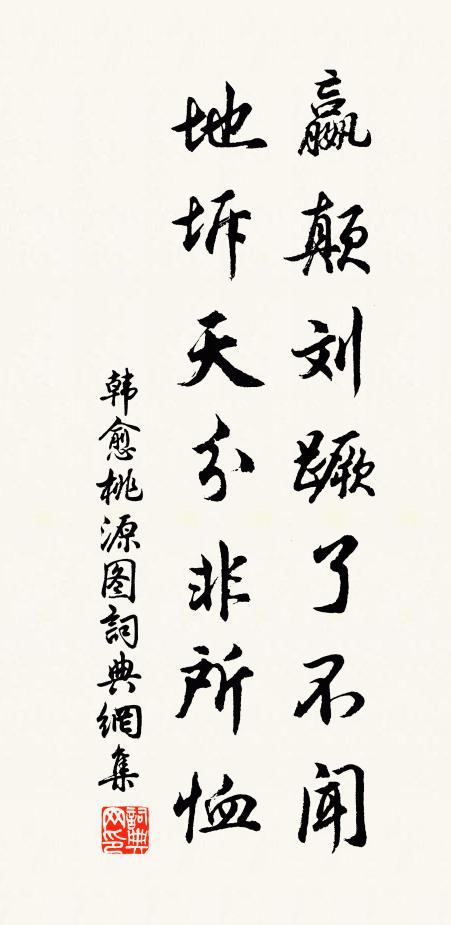 嬴颠刘蹶了不闻
地坼天分非所恤
韩愈桃源图詞典網集
詞典網印